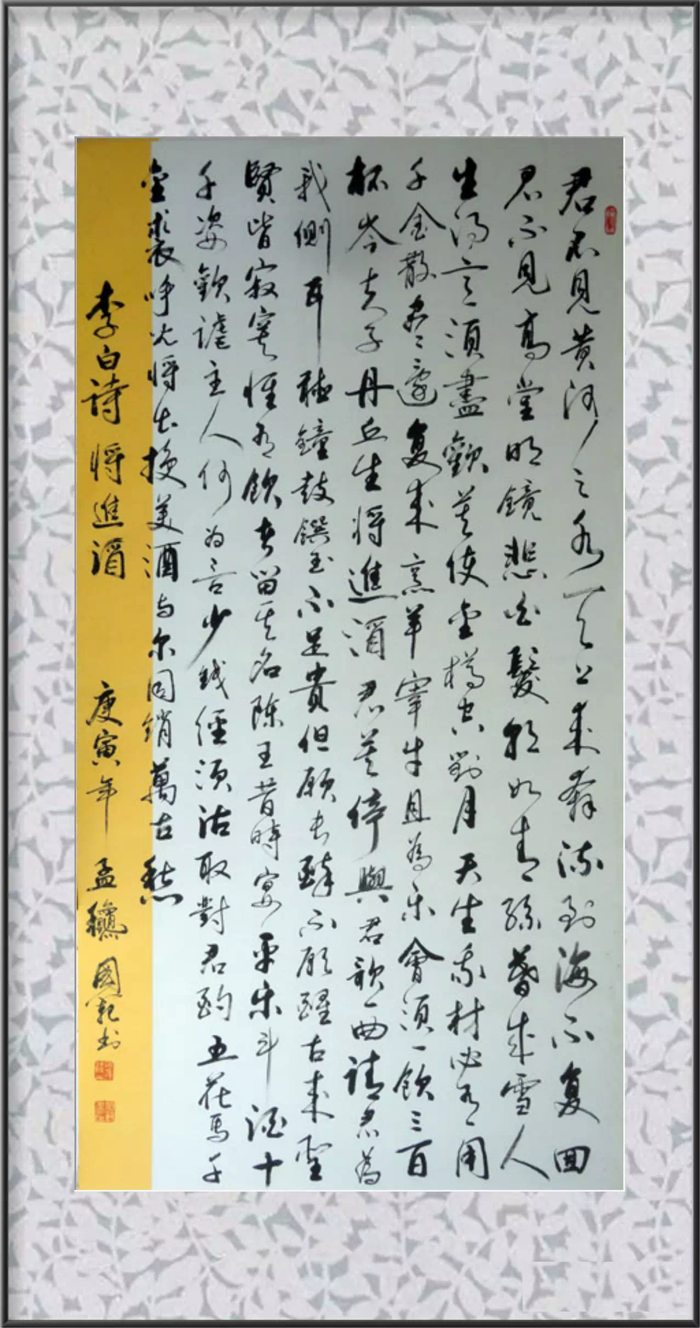 君不見黄河之水天上来奔流到海不复回
君不見高堂明鏡悲白髮朝如青絲暮成雪人
生得意須盡歡莫使金樽空對月天生我材必有用
千金散盡還复来烹羊宰牛且為樂會須一飲三百
杯岑夫子丹丘生将進酒君莫停與君歌一曲請君為
我側耳聽鐘鼓饌玉不足貴但願長醉不願醒古来聖
賢皆寂寞惟有飲者留其名陳王昔時宴平樂斗酒十
千姿歡謔主人何为言少錢徑須沽取對君酌五花馬千
金裘呼兒将出換美酒与尔同銷萬古愁
李白詩 将進酒 庚寅年 孟穐 國乾书